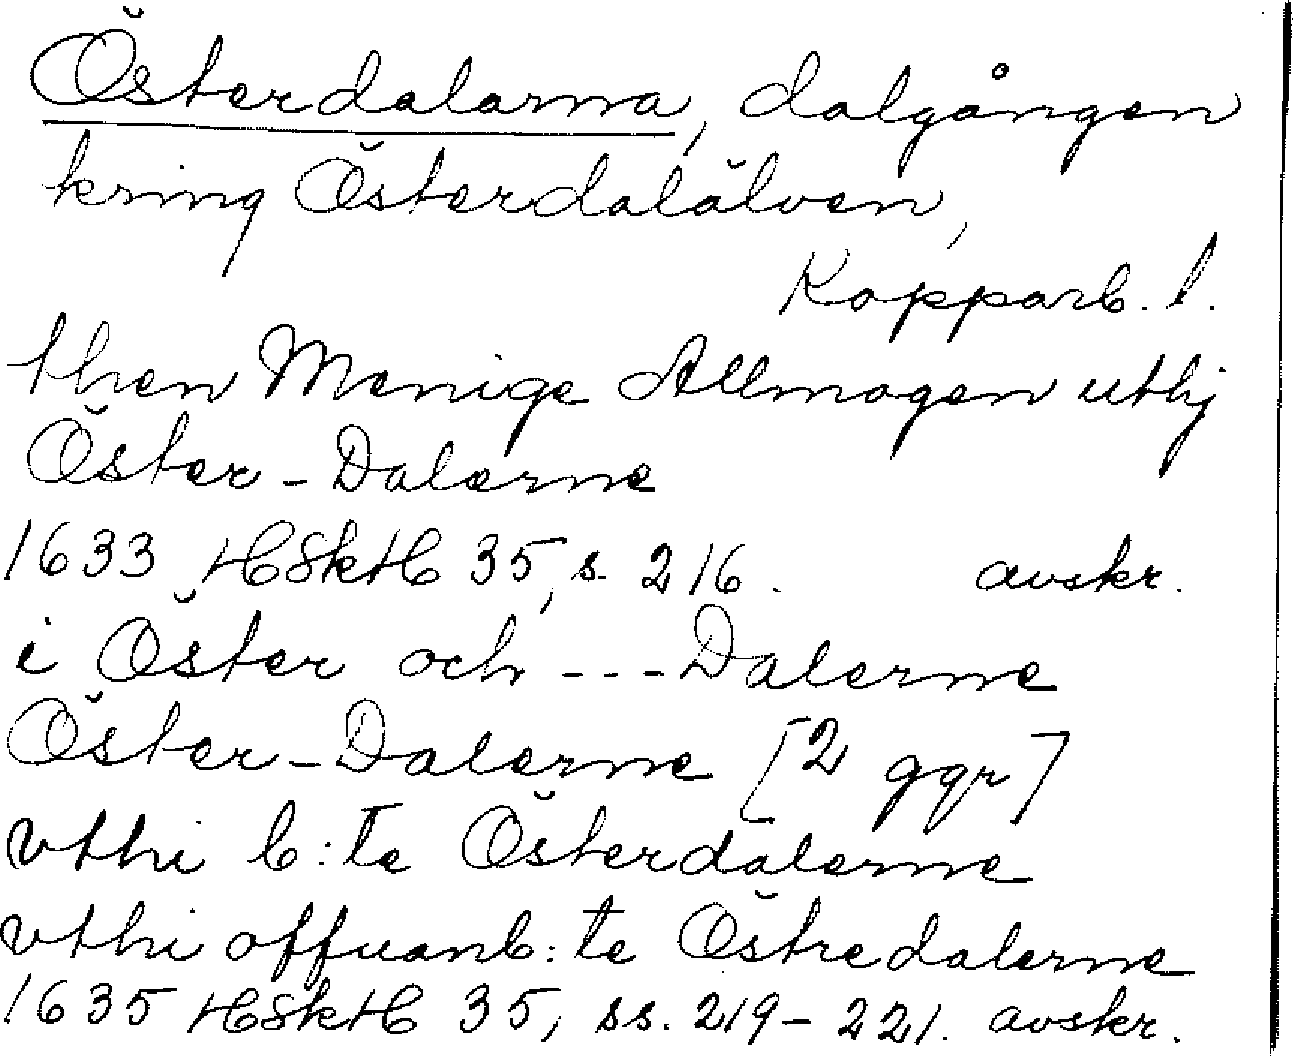 Österdalarna, dalgången
kring Österdalälven,
Kopparb. l.
then Menige Allmogen uthj
Öster-Dalerne
1633 HSktH 35, s. 216. avskr.
i Öster och --- Dalerne
Öster-Dalerne [2 ggr]
vthi b:te Österdalerne
vthi offuanb:te Östredalerne
1635 HSktH 35, ss. 219-221. avskr.